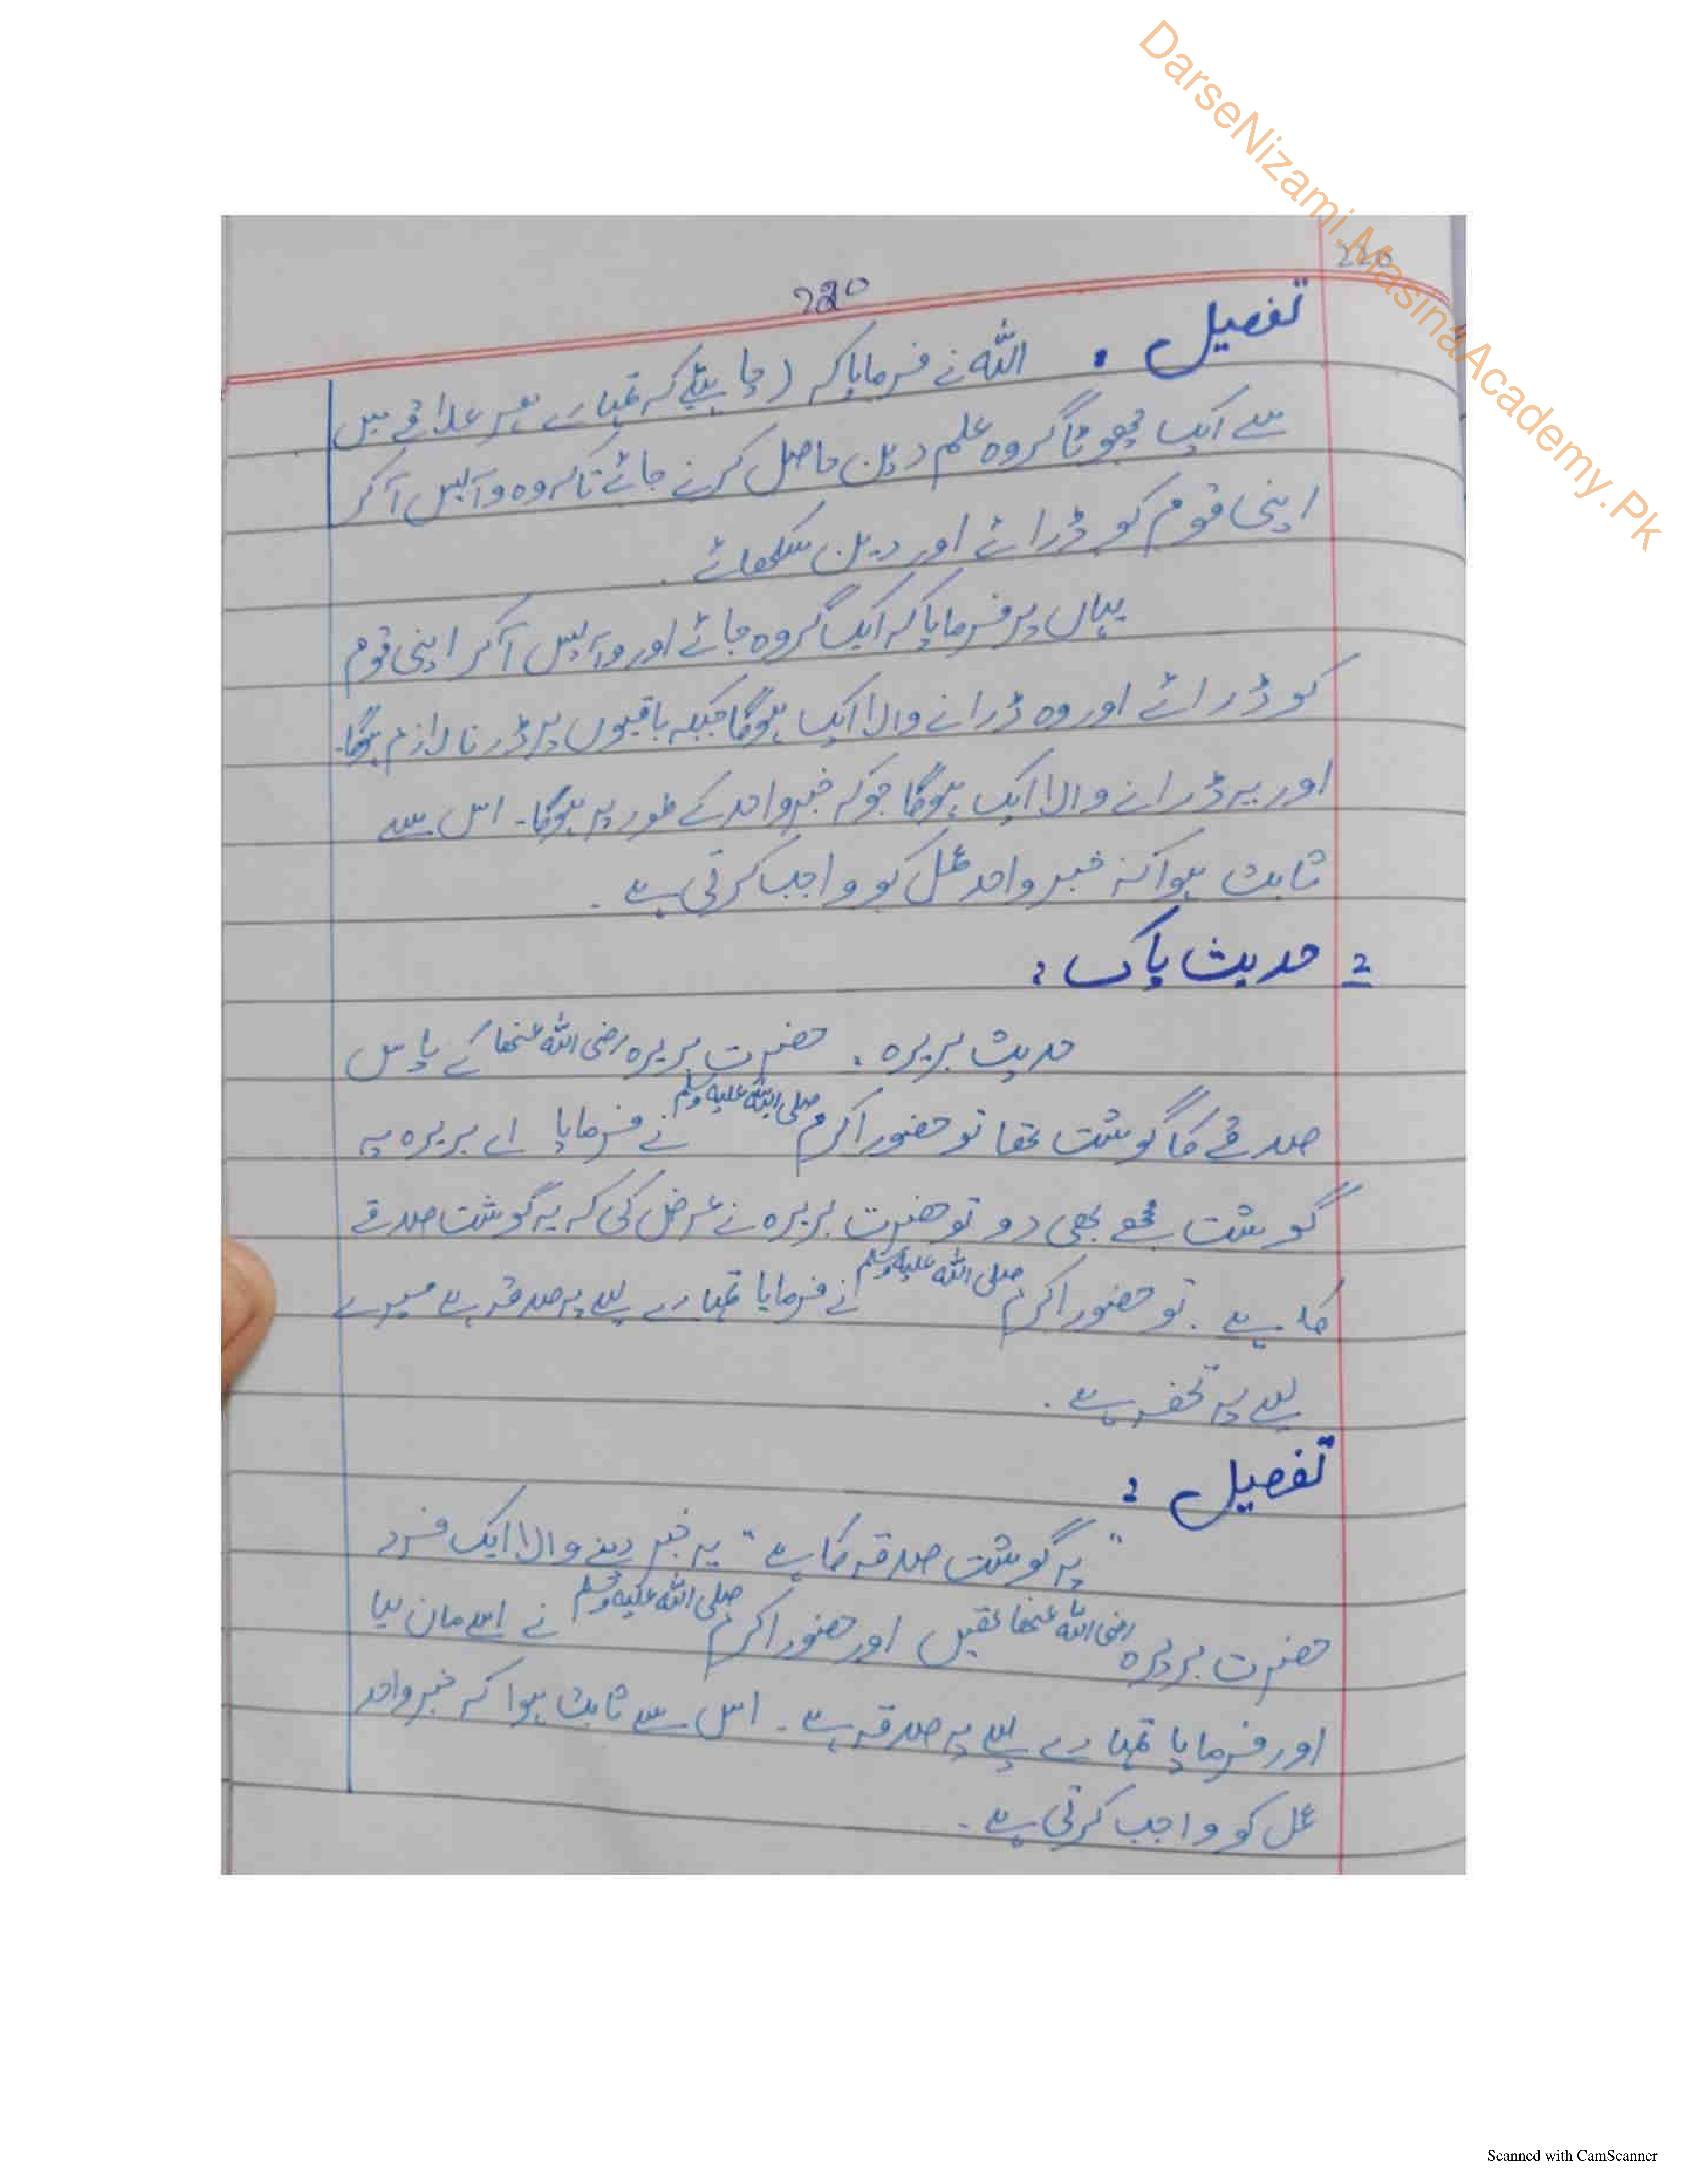 DarseNizami.MasinaAcademy.Pk
220
220
تفصیل :
اللہ نے فرمایا کہ (چاہیئے کہ تمہارے ہر علاقے میں
سے ایک چھوٹا گروہ علم دین حاصل کرنے جائے تاکہ وہ وآپس آ کر
اپنی قوم کو ڈرائے اور دین سکھائے .
یہاں پر فرمایا کہ ایک گروہ جائے اور وآپس آ کر اپنی قوم
کو ڈرائے اور وہ ڈرانے والا ایک ہوگا جبکہ باقیوں پر ڈرنا لازم ہوگا۔
اور یہ ڈرانے والا ایک ہوگا جو کہ خبر واحد کے طور پر ہوگا۔ اس سے
ثابت ہوا کہ خبر واحد عمل کو واجب کرتی ہے .
2 حدیث پاک :
حدیث بریرہ . حضرت بریرہ رضی اللہ عنھا کے پاس
صدقے کا گوشت تھا تو حضور اکرم صلی اللہ علیہ وسلم نے فرمایا اے بریرہ یہ
گوشت مجھے بھی دو تو حضرت بریرہ نے عرض کی کہ یہ گوشت صدقے
کا ہے . تو حضور اکرم صلی اللہ علیہ وسلم نے فرمایا تمہارے لیے یہ صدقہ ہے میرے
لیے یہ تحفہ ہے .
تفصیل :
"یہ گوشت صدقہ کا ہے" یہ خبر دینے والا ایک فرد
حضرت بریرہ رضی اللہ عنھا تھیں اور حضور اکرم صلی اللہ علیہ وسلم نے اسے مان لیا
اور فرمایا تمہارے لیے یہ صدقہ ہے۔ اس سے ثابت ہوا کہ خبر واحد
عمل کو واجب کرتی ہے .
Scanned with CamScanner